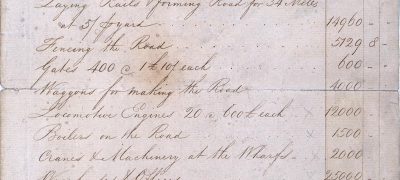 Laying Rails & forming Road for 34 Miles
at 5/ pr yard 14960 - -
Fencing the Road 5129 8 -
Gates 400 @ 1£ 10/ each 600 - -
Waggons for making the Road 4000
Locomotive Engines 20 a 600£ each 12000 -
Boilers on the Road 1500 -
Cranes & Machinery at the Wharfs 2000 -
& Offices 25000 -